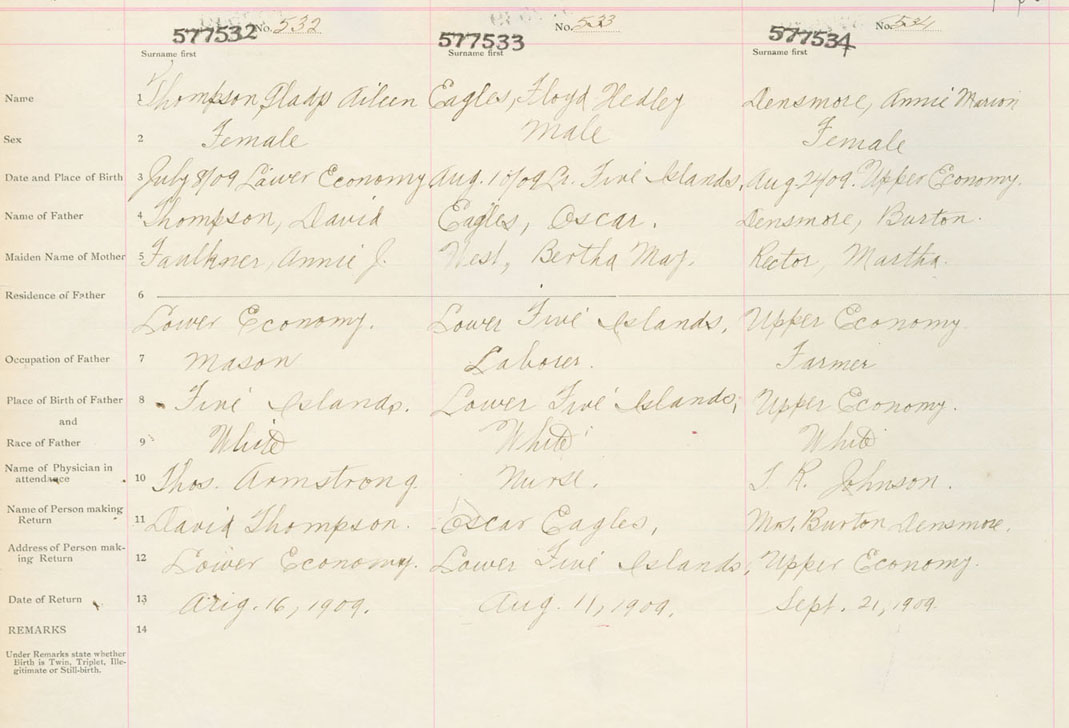 577532 No. 532
577533 No. 533
577534 No. 534
Surname first Surname first Surname first
Name 1 Thompson, Gladys Aileen Eagles, Floyd Hedley Densmore, Annie Marion
Sex 2 Female Male Female
Date and Place of Birth 3 July 8/09 Lower Economy Aug. 10/09 Lr. Five Islands, Aug 2/09. Upper Economy.
Name of Father 4 Thompson, David Eagles, Oscar. Densmore, Burton.
Maiden Name of Mother 5 Faulkner, Annie J. West, Bertha May. Rector, Martha.
Residence of Father 6
Lower Economy. Lower Five Islands, Upper Economy.
Occupation of Father 7 Mason Laborer. Farmer
Place of Birth of Father 8 Five Islands. Lower Five Islands, Upper Economy.
and
Race of Father 9 White White White
Name of Physician in
attendance 10 Thos. Armstrong. Nurse. T. R. Johnson.
Name of Person making
Return 11 David Thompson. Oscar Eagles, Mrs. Burton Densmore.
Address of Person mak-
ing Return 12 Lower Economy. Lower Five Islands, Upper Economy.
Date of Return 13 Aug. 16, 1909. Aug. 11, 1909. Sept. 21, 1909.
REMARKS 14
Under Remarks state whether
Birth is Twin, Triplet, Ille-
gitimate or Still-birth.